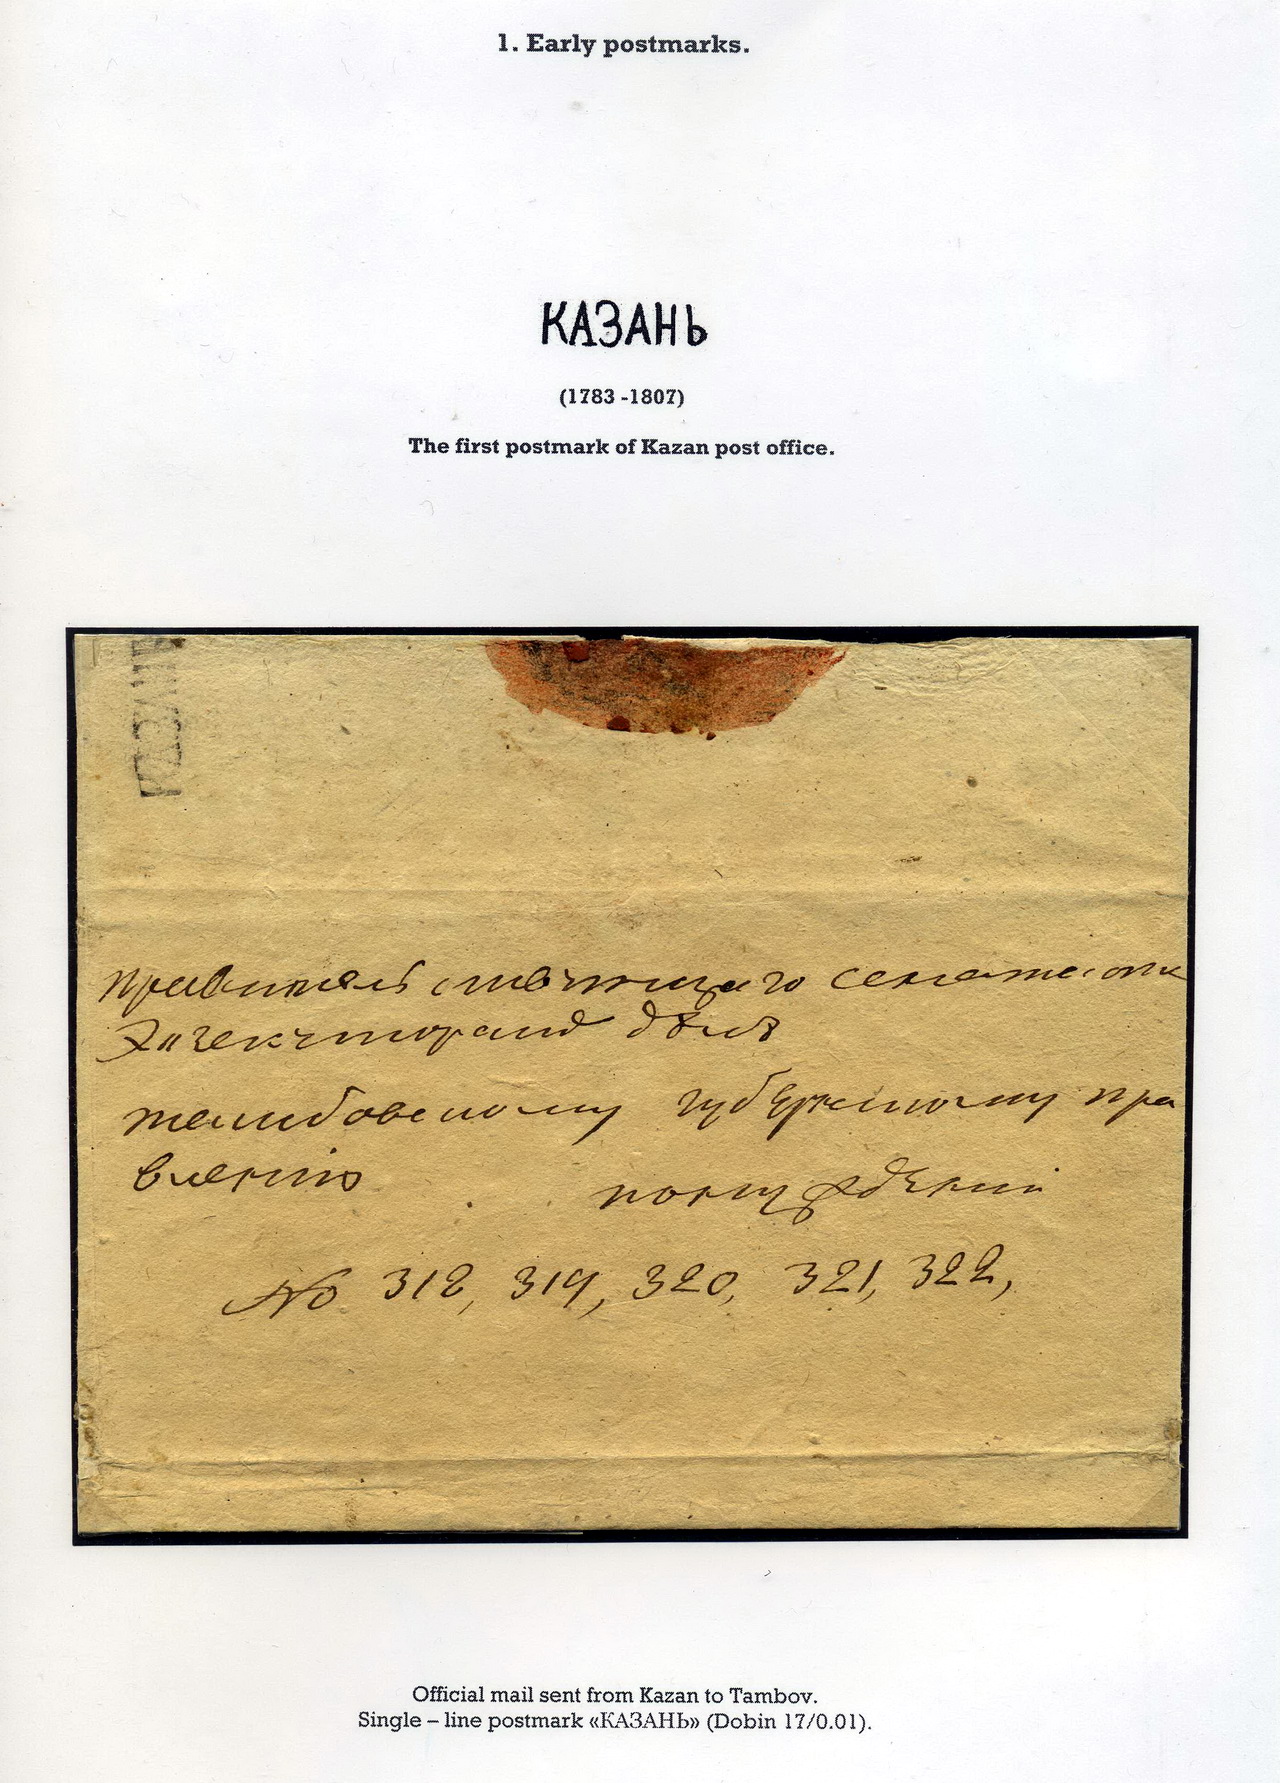 1. Early postmarks.
КАЗАНЬ
(1783 -1807)
The first postmark of Kazan post office.
КАЗАНЬ
правительствующаго сената отъ
Экзекуторскихъ дѣлъ
тамбовскому губернскому пра
влению
No 318, 319, 320, 321, 322,
Official mail sent from Kazan to Tambov.
Single – line postmark «КАЗАНЬ» (Dobin 17/0.01).